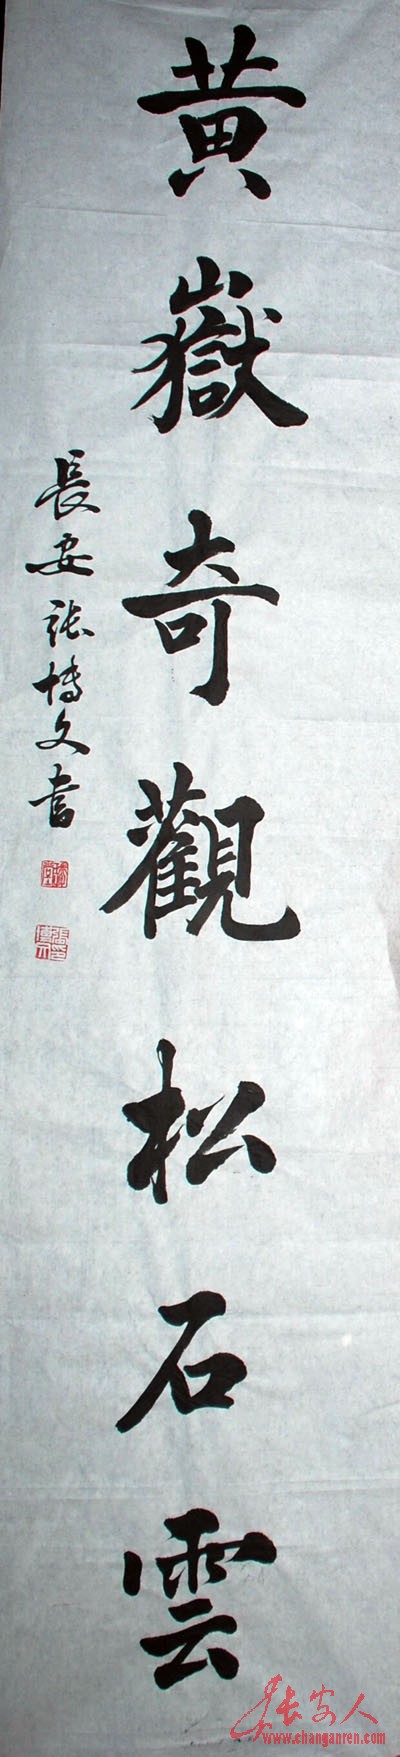 黄嶽奇觀松石雲
長安張博文書
長安人
www.changanren.com